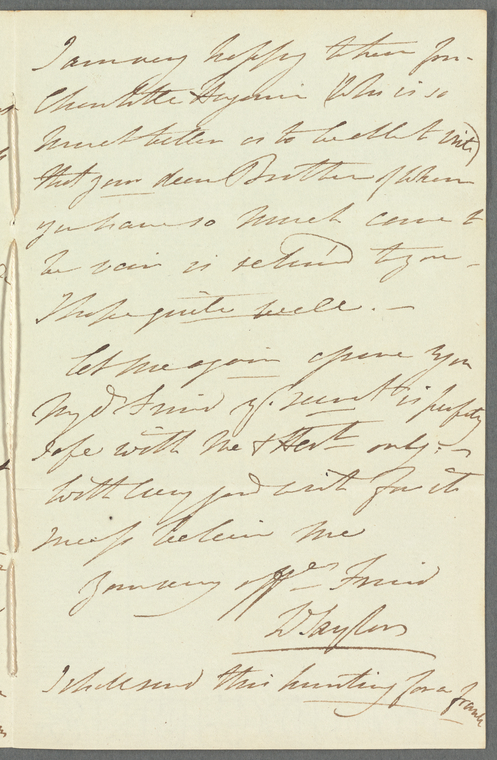 I am very happy to hear from
Charlotte Eugenia (who is so
much better as to be able to write)
that your dear Brother of whom
you have so much cause to
be vain is return'd to you –
I hope quite well. –
Let me again assure you
my dr Friend yr. secret is perfectly
safe with me & only –
With every good wish for it
success believe me
your very affte Friend
D Taylor
I shall send this hunting for a frank